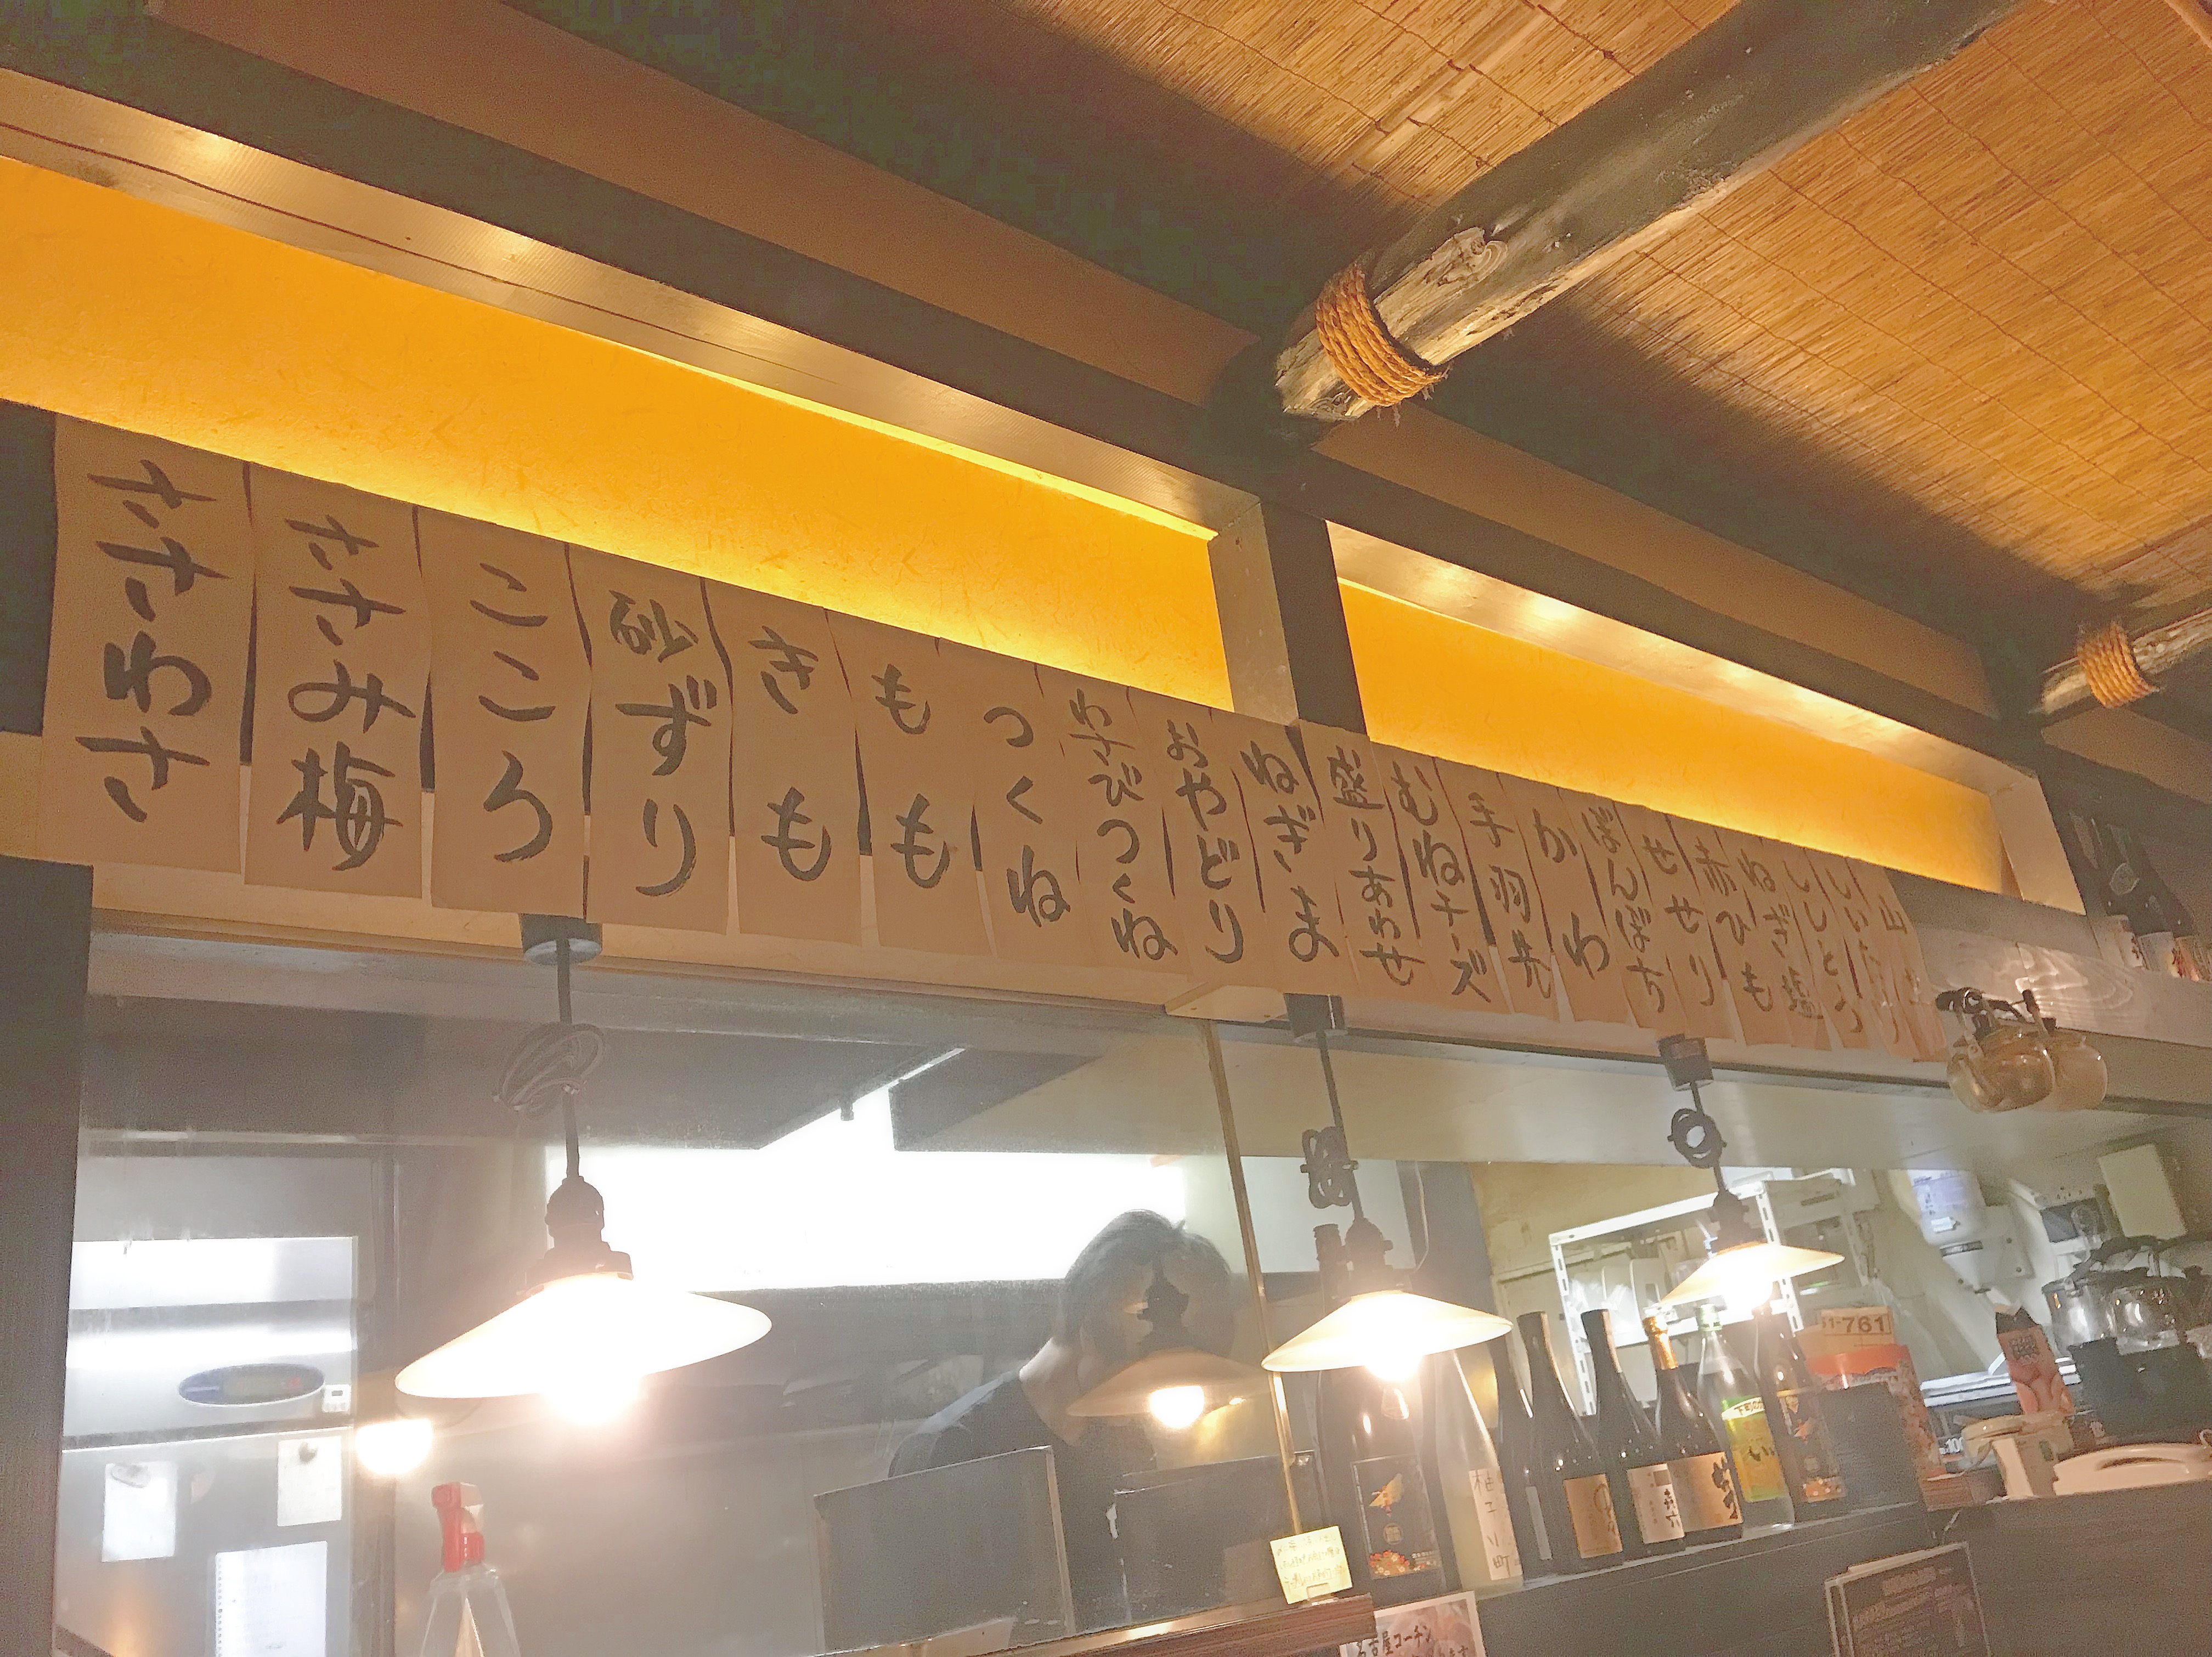 ささわさ
ささみ梅
こころ
砂ずり
きも
もも
つくね
わさびつくね
おやどり
ねぎま
盛りあわせ
むねチーズ
手羽先
かわ
ぼんぼち
せせり
赤ひも
ねぎ塩
ししとう
山
51-761
下町の
柚子小町
名古屋コーチン